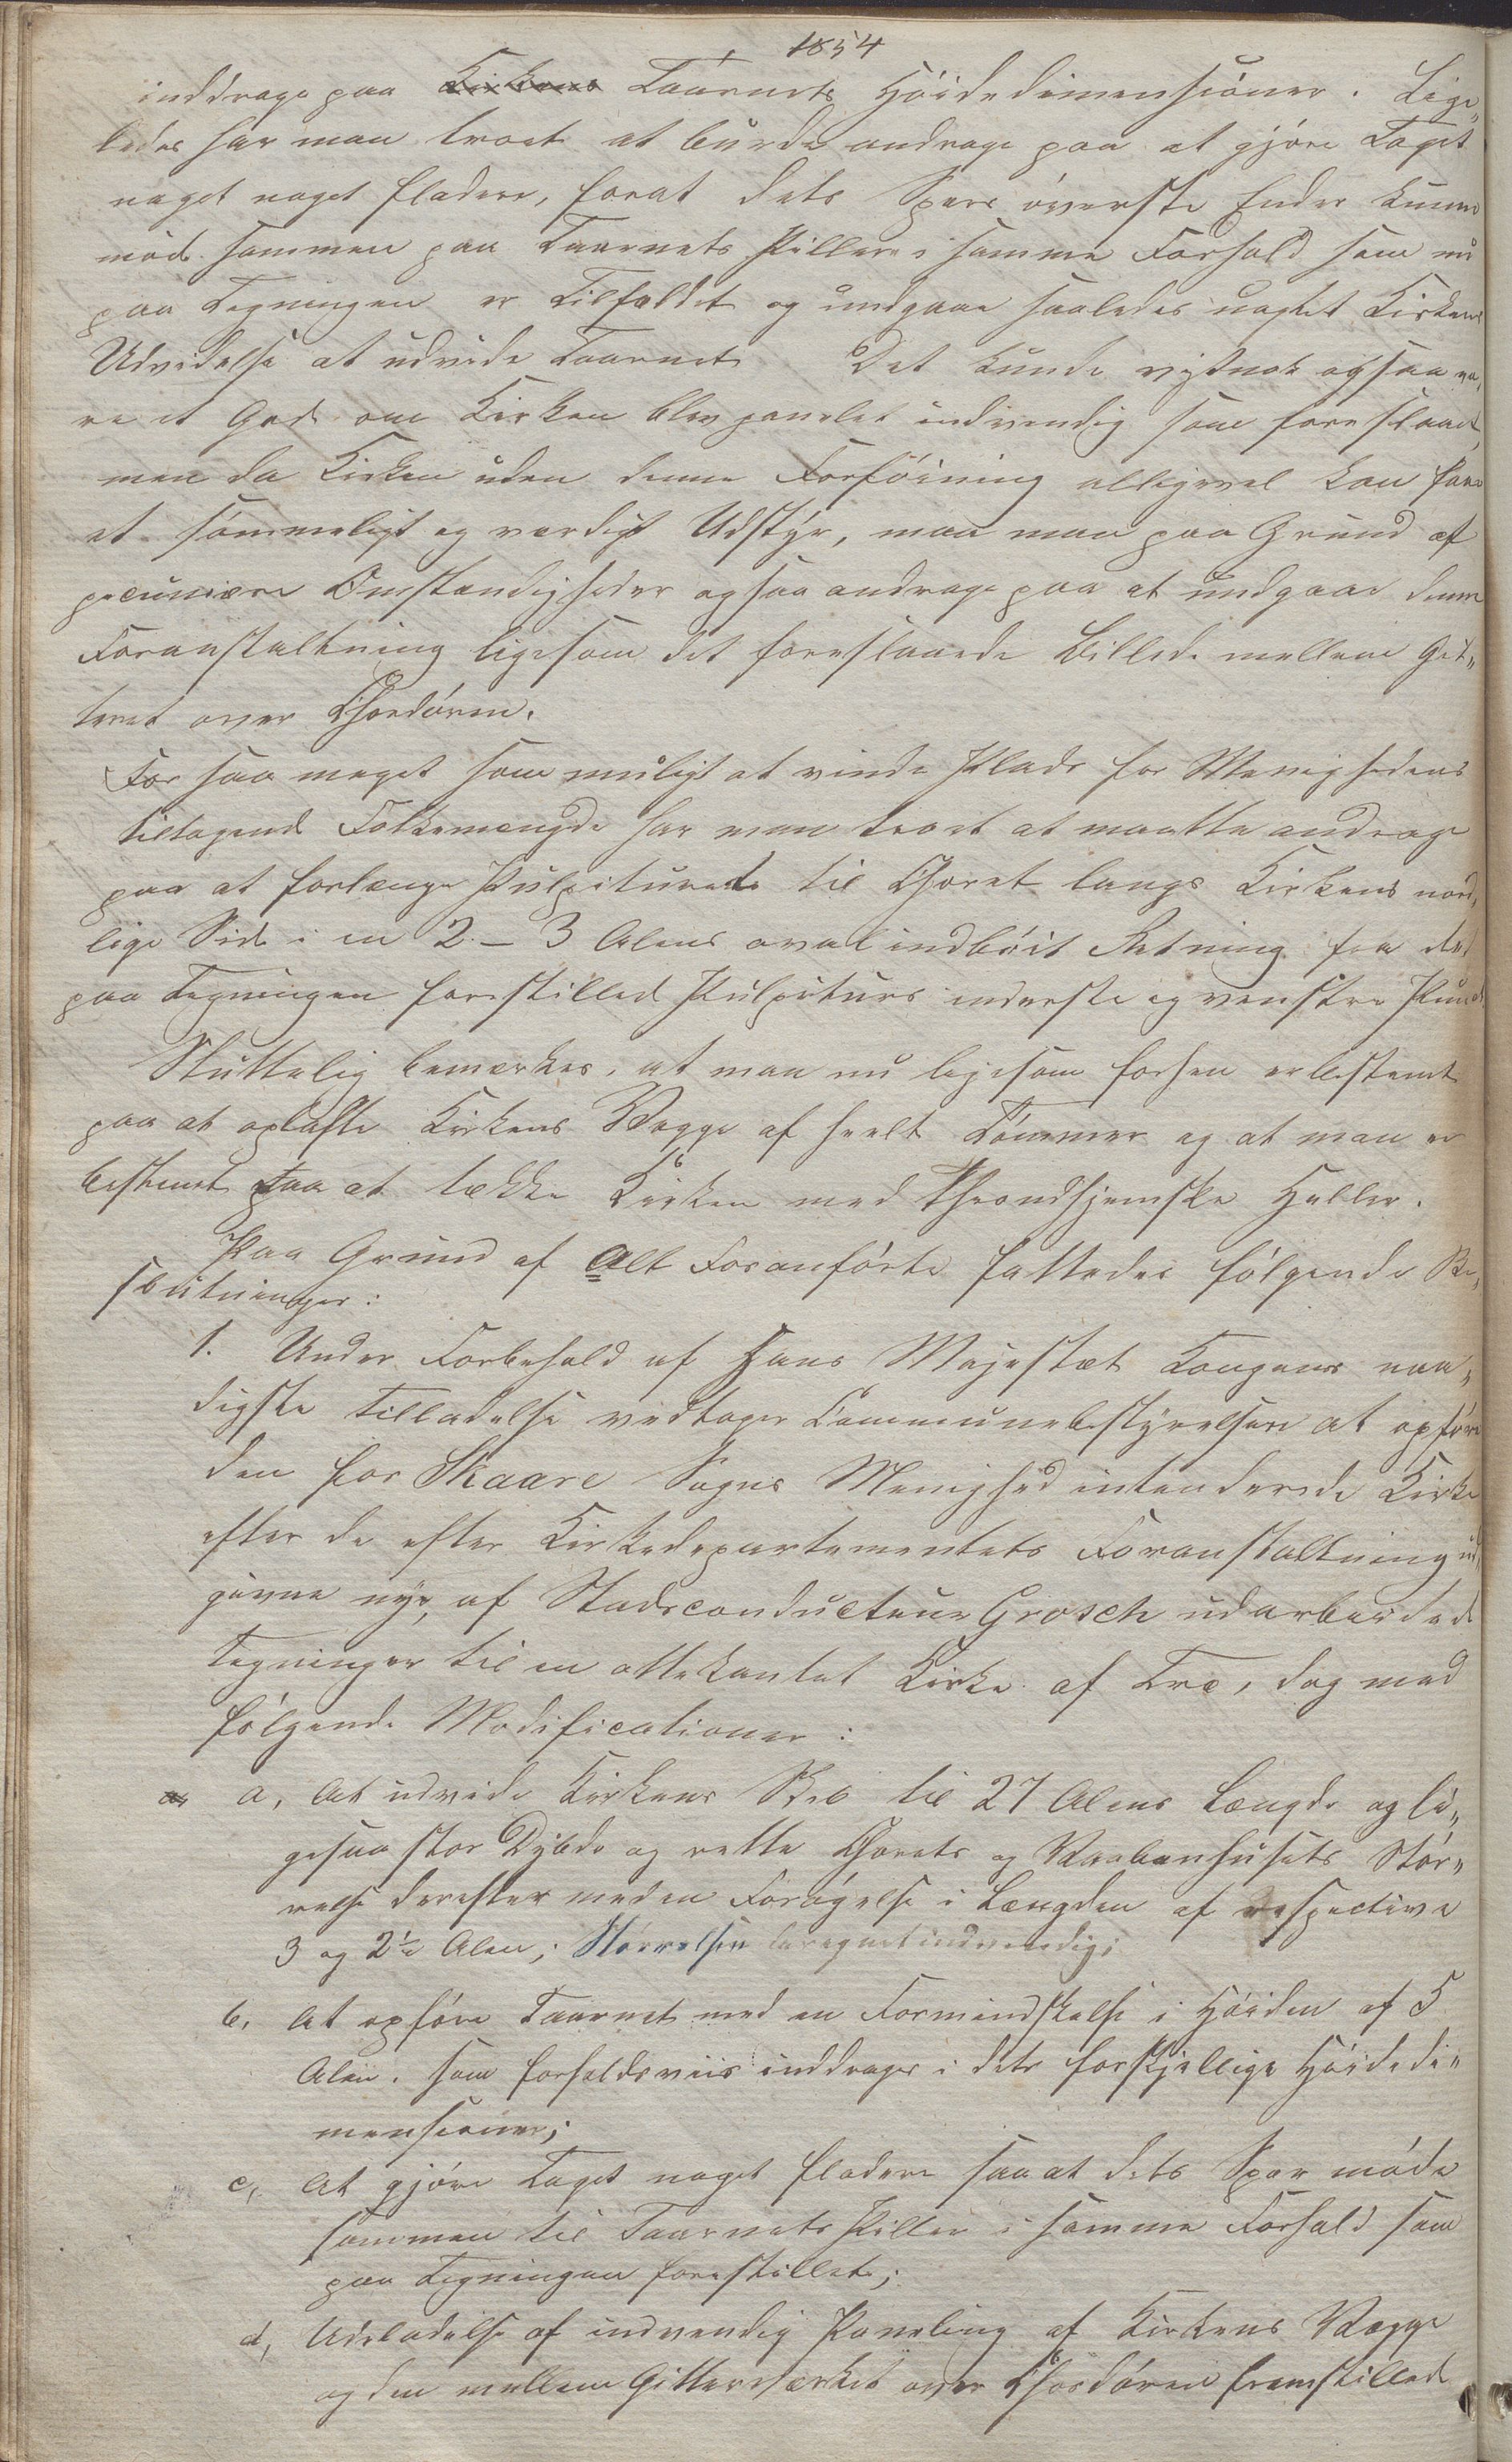 1854
inddrage paa Kirkens Taarnets Höidedimensioner. Lige„
ledes har man troet at burde andrage paa at gjöre Taget
noget noget fladere, forat dets Spers överste Ender kunne
möde sammen paa Taarnets Pillere i samme Forhold som nu
paa Tegningen er Tilfældet og undgaae saaledes uagtet Kirkens
Udvidelse at udvide Taarnet. Det kunde vistnok ogsaa væ„
re et Gode om Kirken blev panelet indvendig som foreslaaet,
men da Kirken uden denne Forföining alligevel kan faae
et sömmeligt og værdigt Udstyr, maa man paa Grund af
pecuniære Omstændigheder ogsaa andrage paa at undgaae denne
Foranstaltning ligesom det foreslaaede Billede mellem Git„
teret over Chordören.
For saa meget som muligt at vinde Plads for Menighedens
tiltagende Folkemængde har man troet at maatte andrage
paa at forlænge Pulpiturete til Choret langs Kirkens nord„
lige Side i en 2 – 3 Alens oval indböit Retning fra det
paa Tegningen forestillede Pulpiturs inderste og venstre Punct
Sluttelig bemærkes, at man nu ligesom forhen er bestemt
paa at oplafte Kirkens Vægge af heelt Tömmer og at man er
bestemt paa at tække Kirken med Throndhjemske Heller.
Paa Grund af Alt Foranförte fattedes fölgende Be„
slutninger:
1. Under Forbehold af Hans Majestæt Kongens naa„
digste Tilladelse vedtager Communebestyrelsen at opföre
den for Skaare Sogns Menighed intenderede Kirke
efter de efter Kirkedepartementets Foranstaltning ud
givne nye, af Stadsconducteur Grosch udarbeidede
Tegninger til en ottekantet Kirke af Træ, dog med
fölgende Modificationer:
a, At udvide Kirkens Skib til 27 Alens Længde og li„
gesaa stor Dybde og rette Chorets og Vaabenhusets Stör„
relse derefter med en Forögelse i Længden af respective
3 og 2½ Alen; Störrelsen beregnet indvendig;
b, At opföre Taarnet med en Formindskelse i Höiden af 5
Alen, som forholdsviis inddrages i dets forskjellige Höidedi„
mensioner;
c, At gjöre Taget noget fladere saa at dets Sper möde
sammen til Taarnets Piller i samme Forhold som
paa Tegningen forestillet;
d, Udeladelse af indvendig Paneling af Kirkens Vægge
og den mellem Gitterværket over Chordören fremstillede